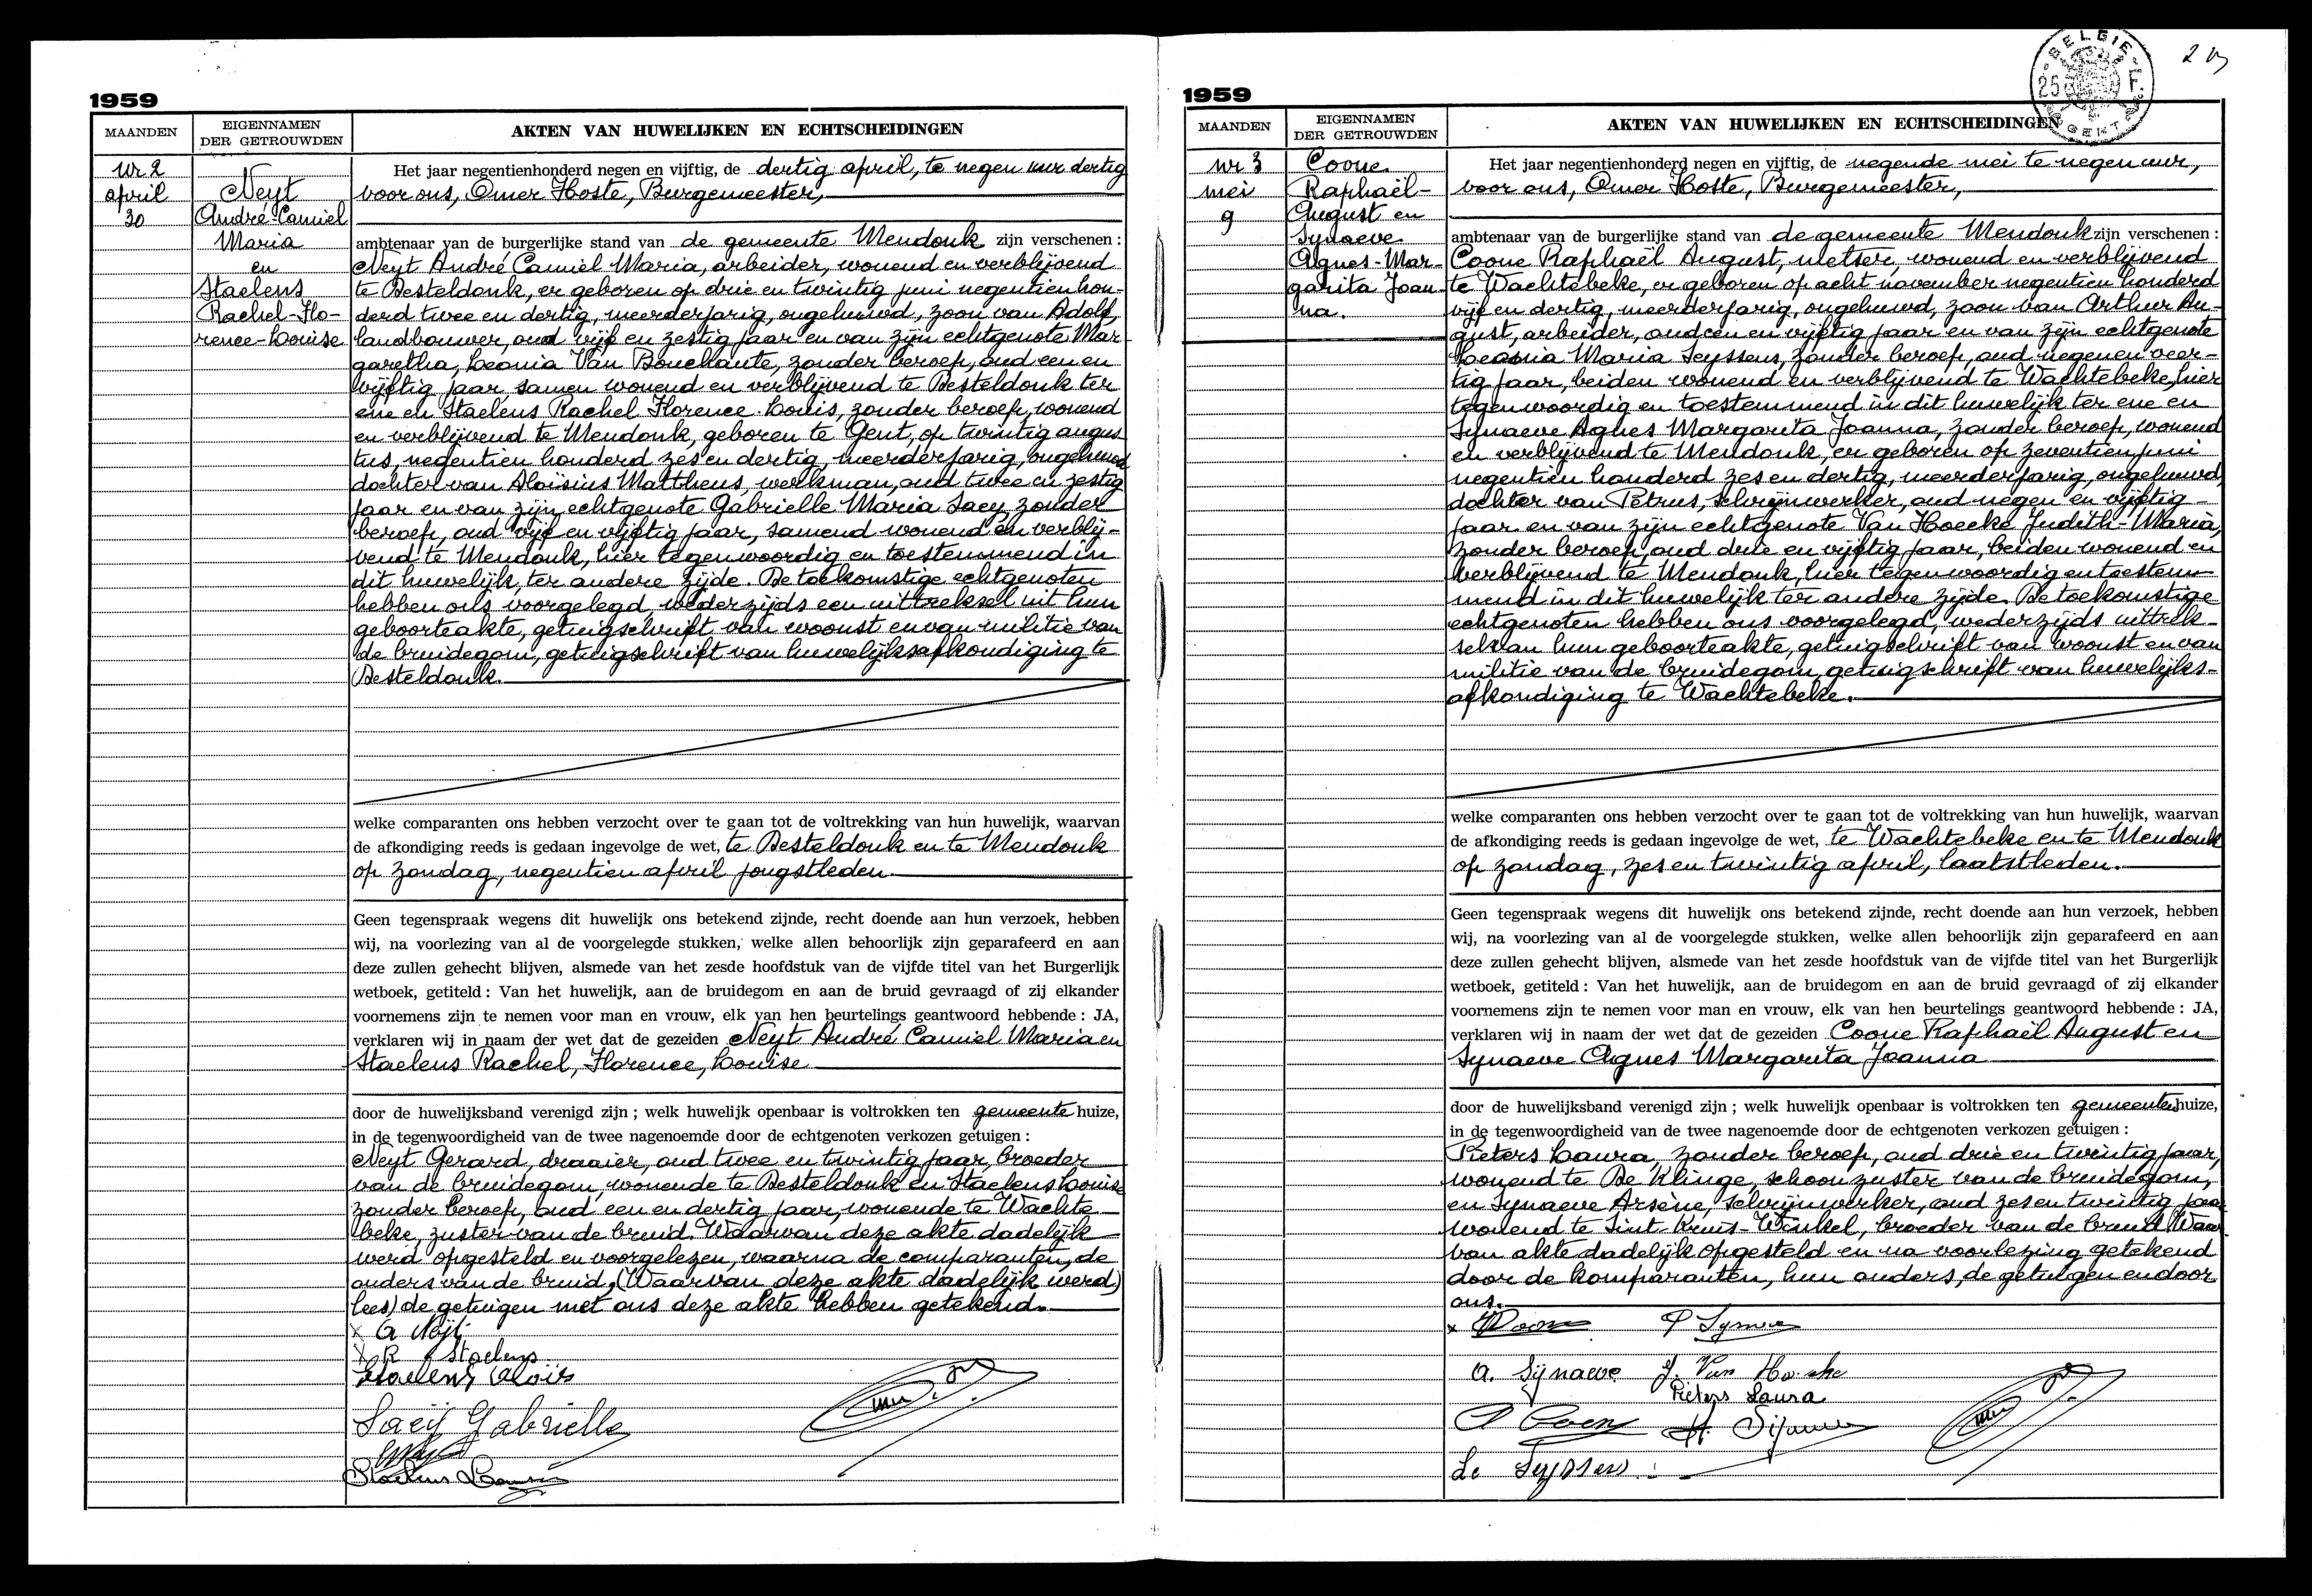 1959
MAANDEN
EIGENNAMEN
DER GETROUWDEN
AKTEN VAN HUWELIJKEN EN ECHTSCHEIDINGEN
Nr 2
april
30
Neyt
André-Camiel
Maria
en
Staelens
Rachel-Flo-
rence-Louise
Het jaar negentienhonderd negen en vijftig, de dertig april, te negen uur dertig
voor ons, Omer Hoste, Burgemeester,
ambtenaar van de burgerlijke stand van de gemeente Mendonk zijn verschenen :
Neyt André Camiel Maria, arbeider, wonend en verblijvend
te Desteldonk, er geboren op drie en twintig juni negentien hon-
derd twee en dertig, meerderjarig, ongehuwd, zoon van Adolf,
landbouwer, oud vijf en zestig jaar en van zijn echtgenote Mar-
garetha, Leonia Van Bouchaute, zonder beroep, oud een en
vijftig jaar, samen wonend en verblijvend te Desteldonk ter
ene en Staelens Rachel Florence Louis, zonder beroep, wonend
en verblijvend te Mendonk, geboren te Gent, op twintig augus-
tus, negentien honderd zes en dertig, meerderjarig, ongehuwd
dochter van Aloïsius Mattheus, werkman, oud twee en zestig
jaar en van zijn echtgenote Gabrielle Maria Saey zonder
beroep, oud vijf en vijftig jaar, samend wonend en verblij-
vend te Mendonk, hier tegenwoordig en toestemmend in
dit huwelijk, ter andere zijde. De toekomstige echtgenoten
hebben ons voorgelegd, wederzijds een uittreksel uit hun
geboorteakte, getuigschrift van woonst en van militie van
de bruidegom, getuigschrift van huwelijksafkondiging te
Desteldonk.
welke comparanten ons hebben verzocht over te gaan tot de voltrekking van hun huwelijk, waarvan
de afkondiging reeds is gedaan ingevolge de wet, te Desteldonk en te Mendonk
op zondag, negentien april jongstleden
Geen tegenspraak wegens dit huwelijk ons betekend zijnde, recht doende aan hun verzoek, hebben
wij, na voorlezing van al de voorgelegde stukken, welke allen behoorlijk zijn geparafeerd en aan
deze zullen gehecht blijven, alsmede van het zesde hoofdstuk van de vijfde titel van het Burgerlijk
wetboek, getiteld : Van het huwelijk, aan de bruidegom en aan de bruid gevraagd of zij elkander
voornemens zijn te nemen voor man en vrouw, elk van hen beurtelings geantwoord hebbende : JA,
verklaren wij in naam der wet dat de gezeiden Neyt André Camiel Maria en
Staelens Rachel, Florence, Louise
door de huwelijksband verenigd zijn ; welk huwelijk openbaar is voltrokken ten gemeente huize,
in de tegenwoordigheid van de twee nagenoemde door de echtgenoten verkozen getuigen :
Neyt Gerard, draaier, oud twee en twintig jaar, broeder
van de bruidegom, wonende te Desteldonk en Staelens Louise
zonder beroep, oud een en dertig jaar, wonende te Wachte
beke, zuster van de bruid. Waarvan deze akte dadelijk
werd opgesteld en voorgelezen, waarna de comparanten, de
ouders van de bruid, (Waarvan deze akte dadelijk werd)
lees) de getuigen met ons deze akte hebben getekend.
x A Neÿt
x R Staelens
Staelens Aloïs
Saeÿ Gabrielle
Staelens Louise
1959
2
BELGIE
25 F
GENT
MAANDEN
EIGENNAMEN
DER GETROUWDEN
AKTEN VAN HUWELIJKEN EN ECHTSCHEIDINGEN
nr 3
mei
9
Coone
Raphaël-
August en
Synaeve
Agnes-Mar-
garita Joan-
na.
Het jaar negentienhonderd negen en vijftig, de negende mei te negen uur,
voor ons, Omer Hoste, Burgemeester,
ambtenaar van de burgerlijke stand van de gemeente Mendonk zijn verschenen :
Coone Raphaël August, metser, wonend en verblijvend
te Wachtebeke, er geboren op acht november negentien honderd
vijf en dertig, meerderjarig, ongehuwd, zoon van Arthur Au-
gust, arbeider, oud een en vijftig jaar en van zijn echtgenote
Maria Seyssens, zonder beroep, oud negen en veer-
tig jaar, beiden wonend en verblijvend te Wachtebeke, hier
tegenwoordig en toestemmend in dit huwelijk ter ene en
Synaeve Agnes Margarita Joanna, zonder beroep, wonend
en verblijvend te Mendonk, er geboren op zeventien juni
negentien honderd zes en dertig, meerderjarig, ongehuwd,
dochter van Petrus, schrijnwerker, oud negen en vijftig
jaar en van zijn echtgenote Van Hoecke Judith-Maria,
zonder beroep, oud drie en vijftig jaar, beiden wonend en
verblijvend te Mendonk, hier tegenwoordig en toestem-
mend in dit huwelijk ter andere zijde. De toekomstige
echtgenoten hebben ons voorgelegd, wederzijds uittrek-
sel van hun geboorteakte, getuigschrift van woonst en van
militie van de bruidegom, getuigschrift van huwelijks-
afkondiging te Wachtebeke.
welke comparanten ons hebben verzocht over te gaan tot de voltrekking van hun huwelijk, waarvan
de afkondiging reeds is gedaan ingevolge de wet, te Wachtebeke en te Mendonk
op zondag, zes en twintig april, laatstleden.
Geen tegenspraak wegens dit huwelijk ons betekend zijnde, recht doende aan hun verzoek, hebben
wij, na voorlezing van al de voorgelegde stukken, welke allen behoorlijk zijn geparafeerd en aan
deze zullen gehecht blijven, alsmede van het zesde hoofdstuk van de vijfde titel van het Burgerlijk
wetboek, getiteld : Van het huwelijk, aan de bruidegom en aan de bruid gevraagd of zij elkander
voornemens zijn te nemen voor man en vrouw, elk van hen beurtelings geantwoord hebbende : JA,
verklaren wij in naam der wet dat de gezeiden Coone Raphaël August en
Synaeve Agnes Margarita Joanna
door de huwelijksband verenigd zijn ; welk huwelijk openbaar is voltrokken ten gemeente huize,
in de tegenwoordigheid van de twee nagenoemde door de echtgenoten verkozen getuigen :
Pieters Laura, zonder beroep, oud drie en twintig jaar,
wonend te De Klinge, schoonzuster van de bruidegom,
en Synaeve Arsène, schrijnwerker, oud zes en twintig jaar
wonend te Sint-Kruis-Winkel, broeder van de bruid. Waar-
van akte dadelijk opgesteld en na voorlezing getekend
door de komparanten, hun ouders, de getuigen en door
ons.
x P Synaeve
A. Sÿnaeve J. Van Hoecke
Pieters Laura
Le Seÿssens